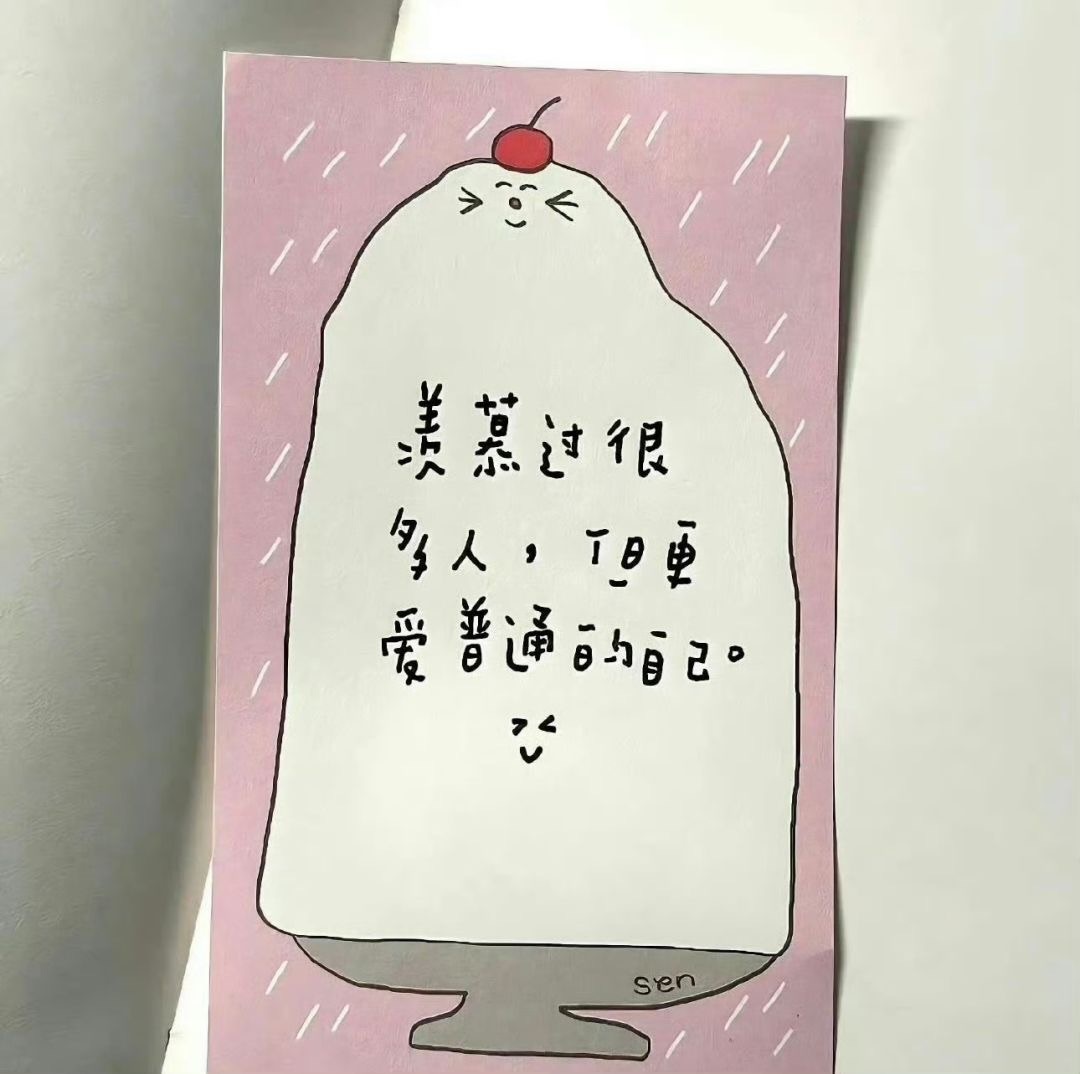 羡慕过很
多人，但更
爱普通的自己。
sen